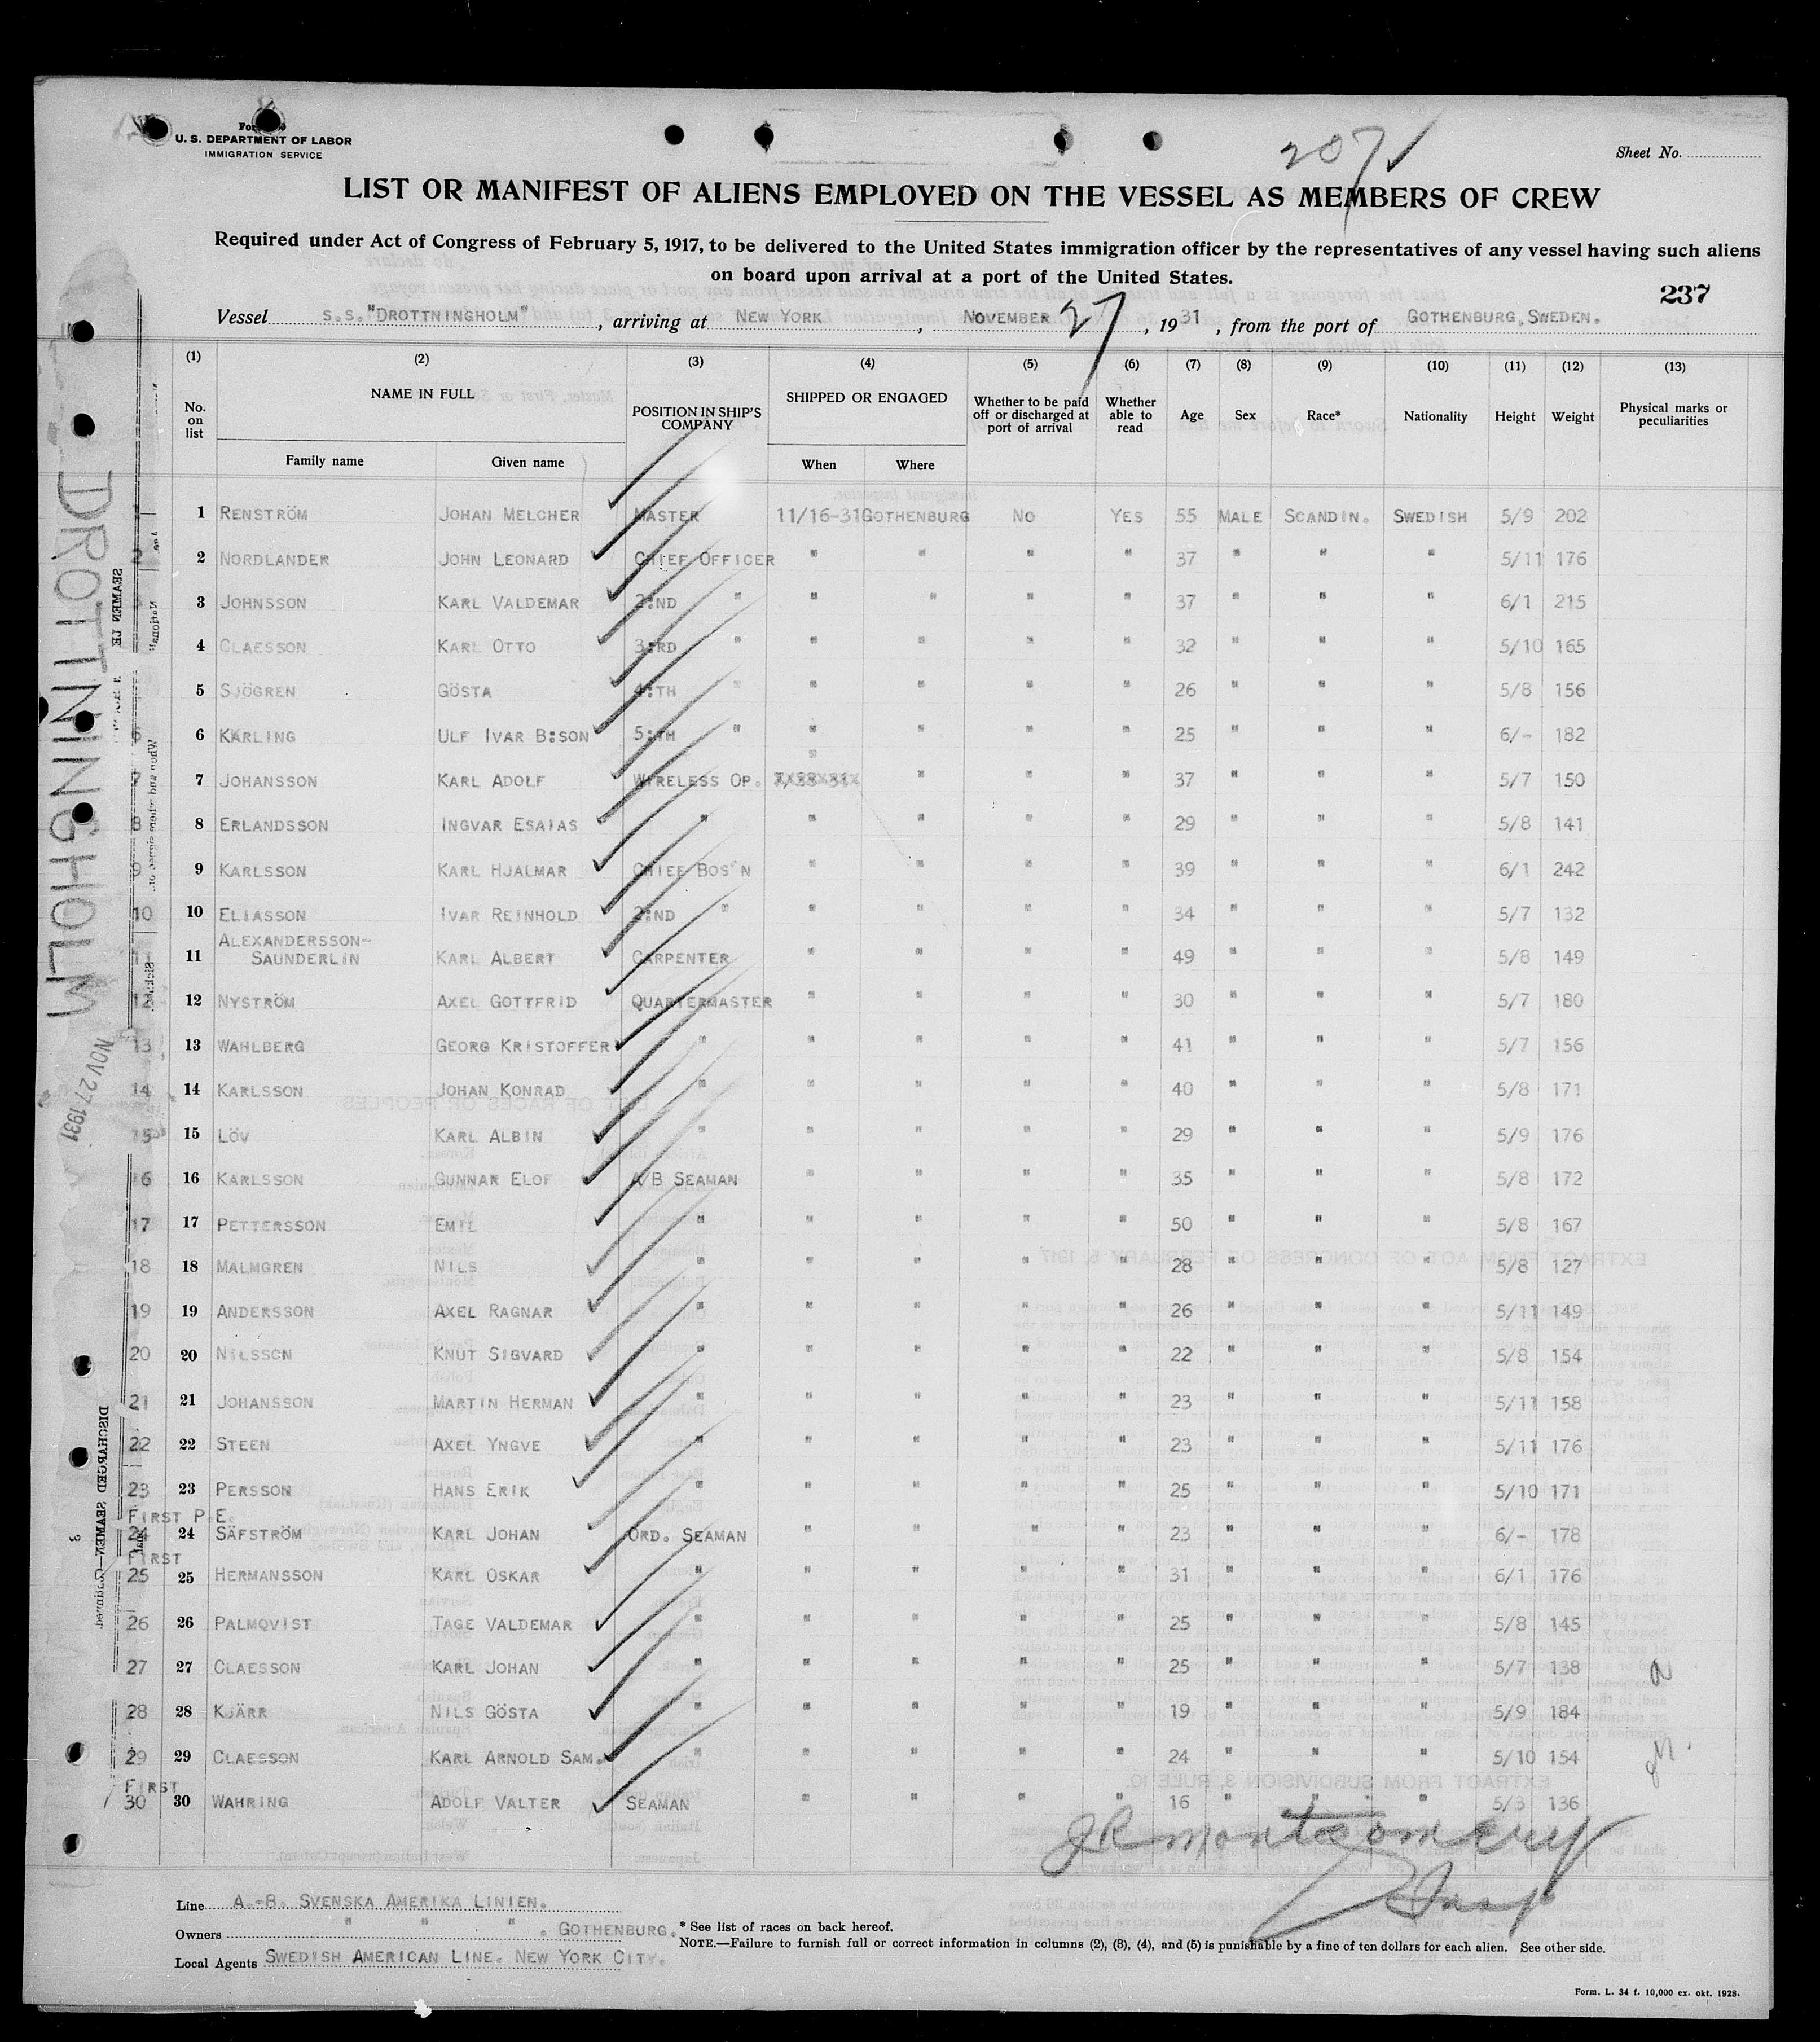 U. S. DEPARTMENT OF LABOR
IMMIGRATION SERVICE
207
Sheet No.
LIST OR MANIFEST OF ALIENS EMPLOYED ON THE VESSEL AS MEMBERS OF CREW
Required under Act of Congress of February 5, 1917, to be delivered to the United States immigration officer by the representatives of any vessel having such aliens
on board upon arrival at a port of the United States.
237
Vessel S.S. "DROTTNINGHOLM", arriving at NEW YORK, NOVEMBER 27, 1931, from the port of GOTHENBURG, SWEDEN.
(1) (2) (3) (4) (5) (6) (7) (8) (9) (10) (11) (12) (13)
No. on list NAME IN FULL POSITION IN SHIP'S COMPANY SHIPPED OR ENGAGED Whether to be paid off or discharged at port of arrival Whether able to read Age Sex Race* Nationality Height Weight Physical marks or peculiarities
Family name Given name When Where
1 RENSTRÖM JOHAN MELCHER MASTER 11/16-31 GOTHENBURG NO YES 55 MALE SCANDIN. SWEDISH 5/9 202
2 2 NORDLANDER JOHN LEONARD CHIEF OFFICER " " " " 37 " " " 5/11 176
3 JOHNSSON KARL VALDEMAR 2:ND " " " " " 37 " " " 6/1 215
4 CLAESSON KARL OTTO 3:RD " " " " " 32 " " " 5/10 165
5 SJÖGREN GÖSTA 4:TH " " " " " 26 " " " 5/8 156
6 6 KARLING ULF IVAR B:SON 5:TH " " " " " 25 " " " 6/- 182
7 7 JOHANSSON KARL ADOLF WIRELESS OP. " " " " 37 " " " 5/7 150
8 8 ERLANDSSON INGVAR ESAIAS " " " " " 29 " " " 5/8 141
9 9 KARLSSON KARL HJALMAR CHIEF BOS'N " " " " 39 " " " 6/1 242
10 10 ELIASSON IVAR REINHOLD 2:ND " " " " " 34 " " " 5/7 132
11 11 ALEXANDERSSON-
SAUNDERLIN KARL ALBERT CARPENTER " " " " 49 " " " 5/8 149
12 12 NYSTRÖM AXEL GOTTFRID QUARTERMASTER " " " " 30 " " " 5/7 180
13 13 WAHLBERG GEORG KRISTOFFER " " " " " 41 " " " 5/7 156
14 14 KARLSSON JOHAN KONRAD " " " " " 40 " " " 5/8 171
15 15 LÖV KARL ALBIN " " " " " 29 " " " 5/9 176
16 16 KARLSSON GUNNAR ELOF A/B SEAMAN " " " " 35 " " " 5/8 172
17 17 PETTERSSON EMIL " " " " " 50 " " " 5/8 167
18 18 MALMGREN NILS " " " " " 28 " " " 5/8 127
19 19 ANDERSSON AXEL RAGNAR " " " " " 26 " " " 5/11 149
20 20 NILSSON KNUT SIGVARD " " " " " 22 " " " 5/8 154
21 21 JOHANSSON MARTIN HERMAN " " " " " 23 " " " 5/11 158
22 22 STEEN AXEL YNGVE " " " " " 23 " " " 5/11 176
23 23 PERSSON HANS ERIK " " " " " 25 " " " 5/10 171
FIRST P.E.
24 24 SÄFSTRÖM KARL JOHAN ORD. SEAMAN " " " " 23 " " " 6/- 178
FIRST
25 25 HERMANSSON KARL OSKAR " " " " " 31 " " " 6/1 176
26 26 PALMQVIST TAGE VALDEMAR " " " " " 25 " " " 5/8 145
27 27 CLAESSON KARL JOHAN " " " " " 25 " " " 5/7 138
28 28 KJÄRR NILS GÖSTA " " " " " 19 " " " 5/9 184
29 29 CLAESSON KARL ARNOLD SAM. " " " " " 24 " " " 5/10 154
FIRST
30 30 WAHRING ADOLF VALTER SEAMAN " " " " 16 " " " 5/3 136
JR Montgomery
Insp
Line A.-B. SVENSKA AMERIKA LINIEN.
Owners " " " . GOTHENBURG.
Local Agents SWEDISH AMERICAN LINE. NEW YORK CITY.
* See list of races on back hereof.
NOTE.—Failure to furnish full or correct information in columns (2), (3), (4), and (5) is punishable by a fine of ten dollars for each alien. See other side.
Form. L. 34 f. 10,000 ex. okt. 1928.
DROTTNINGHOLM
NOV 27 1931
SEAMEN
DISCHARGED SEAMEN